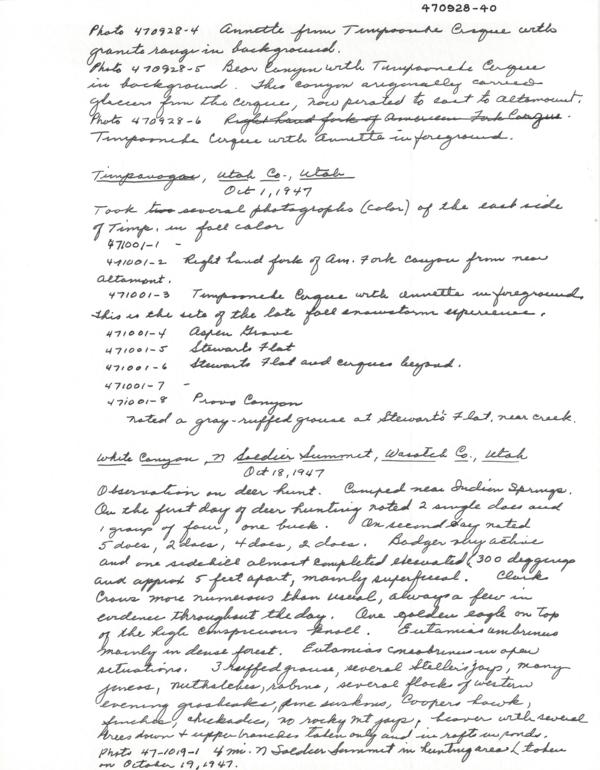 470928-40
Photo 470928-4 Annette from Timpooneke Cirque with
granite range in background.
Photo 470928-5 Bear Canyon with Timpooneke Cirque
in background. This canyon originally carried
glaciers from the cirque, now pirated to east to Altamount.
Photo 470928-6 Right hand fork of American Fork Canyon.
Timpooneke Cirque with Annette in foreground.
Timpanogas, Utah Co., Utah
Oct 1, 1947
Took two several photographs (color) of the east side
of Timp. in fall color
471001-1 -
471001-2 Right hand fork of Am. Fork canyon from near
Altamont.
471001-3 Timpooneke Cirque with Annette in foreground.
This is the site of the late fall snowstorm experience.
471001-4 Aspen Grove
471001-5 Stewarts Flat
471001-6 Stewarts Flat and cirques beyond.
471001-7 -
471001-8 Provo Canyon
noted a gray-ruffed grouse at Stewart's Flat, near creek.
White Canyon, N Soldier Summit, Wasatch Co., Utah
Oct 18, 1947
Observation on deer hunt. Camped near Indian Springs.
On the first day of deer hunting noted 2 single does and
1 group of four, one buck. On second day noted
5 does, 2 does, 4 does, 2 does. Badger very active
and one sidehill almost completed excavated, 300 diggings
and approx 5 feet apart, mainly superficial. Clark
Crows more numerous than usual, always a few in
evidence throughout the day. One golden eagle on top
of the high conspicuous knoll. Eutamias umbrinus
mainly in dense forest. Eutamias in open
situations. 3 ruffed grouse, several Steller's jays, many
juncos, nuthatches, robins, several flocks of western
evening grosbeaks, pine siskins, Coopers hawk,
finches, chickadees, no rocky mt jays, beaver with several
trees down & upper branches taken only and in rafts in ponds.
Photo 47-1019-1 4 mi. N Soldier Summit in hunting area taken
on October 19, 1947.